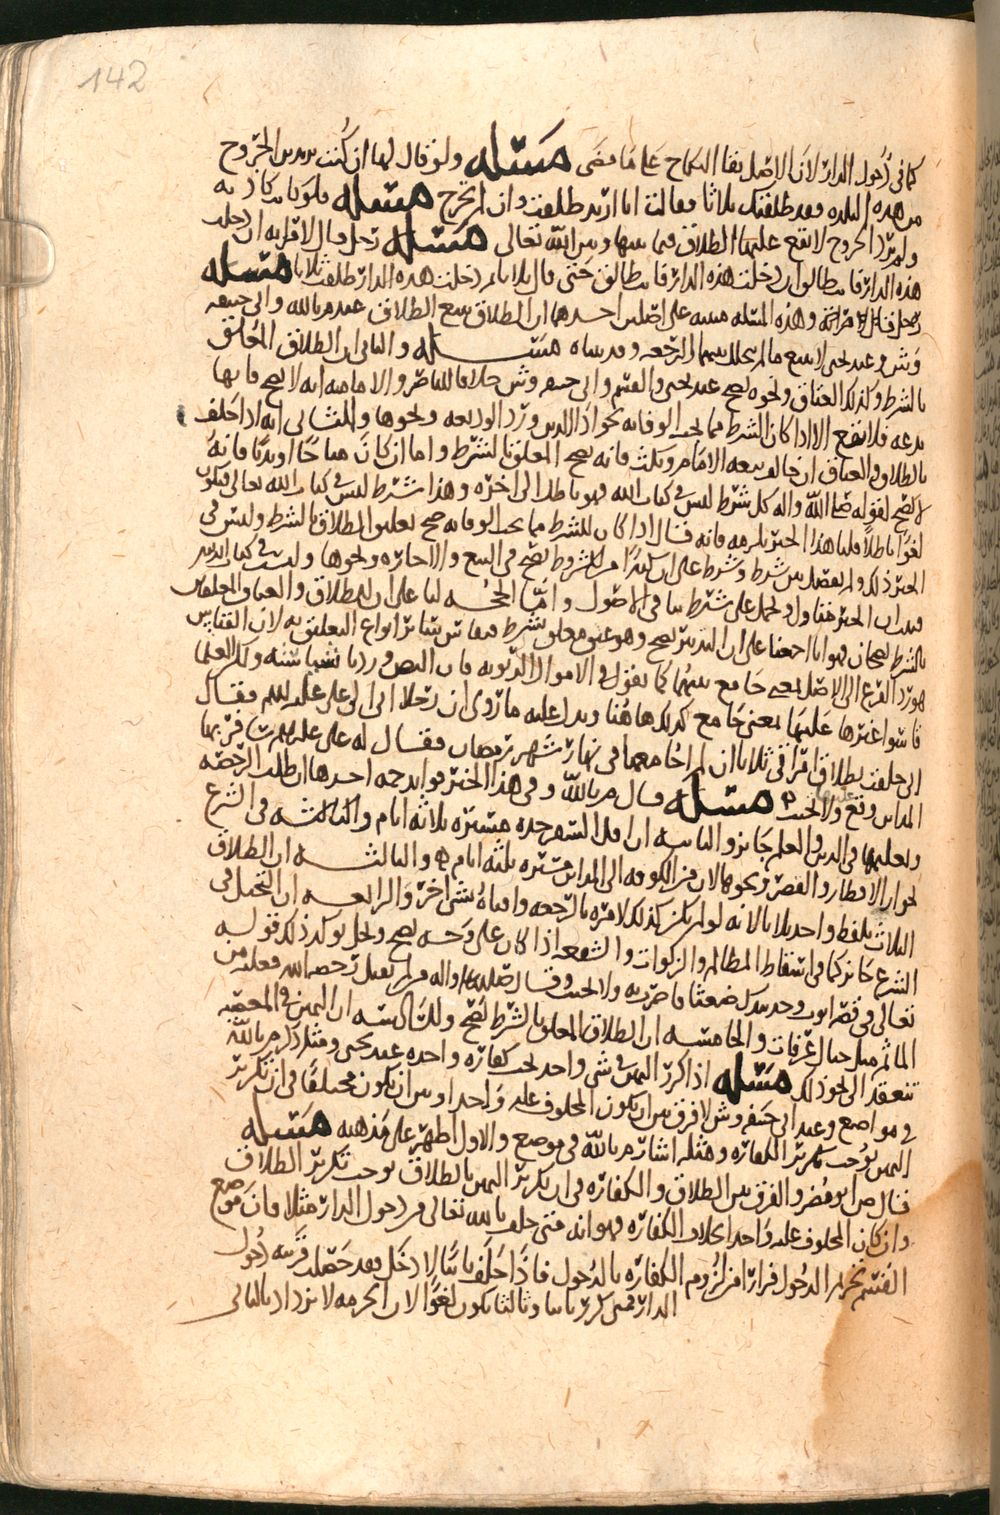 142
كما في دخول الدار لان الاصل بقا النكاح على ما مضى مسئلة ولو قال لها ان كنت تريدين الخروج
من هذه البلدة فقد طلقتك ثلاثا فقالت انا اريد طلقت وان لم تخرج مسئلة
ولم ترد الخروج لا يقع عليها الطلاق فيما بينها وبين الله تعالى مسئلة رجل قال لامراته ان دخلت
هذه الدار فانت طالق ان دخلت هذه الدار فانت طالق حتى قال ثلاثا ثم دخلت هذه الدار طلقت ثلاثا مسئلة
وهذه المسئلة مبنية على اصلين احدهما ان الطلاق يتبع الطلاق عند م بالله وابي حنيفة
وش وعند يحيى لا يتبع ما لم يتخلل بينهما الرجعة وقد بيناه مسئلة والثاني ان الطلاق المعلق
بالشرط وكذلك العتاق ونحوه يصح عند يحيى والقسم وابي حنيفة وش خلافا للناصر والامامية انه لا يصح
بدعة فلا يقع الا اذا كان الشرط مما يجب الوفا به نحو اذا الدين ورد الوديعة ونحوها
بالطلاق والعتاق ان خالف بيعة الامام ونكث فانه يصح المعلق بالشرط واما ان كان مباحا او ندبا فانه
لا يصح لقوله صلى الله واله كل شرط ليس في كتاب الله فهو باطل الى اخره وهذا شرط ليس في كتاب الله تعالى فيكون
لغوا باطلا قلنا هذا الخبر يلزمه فانه قال اذا كان للشرط مما يجب الوفا به صح تعليق الطلاق بالشرط وليس في
الخبر ذلك ولم يفصل بين شرط وشرط على ان كثيرا من الشروط يصح في البيع والاجارة ونحوها وليست في كتاب الله
الخبر متاول ويحمل على شرط ينافي الاصول واما الحجة لنا على ان الطلاق والعتاق المعلقين
بالشرط يصحان فهو انا اجمعنا على ان التدبير يصح وهو عتق معلق بشرط فيقاس سائر انواع التعليق به لان القياس
هو رد الفرع الى الاصل بمعنى جامع بينهما كما نقول في الاموال الربوية فان النص ورد باشيا ستة ولكن العلما
قاسوا غيرها عليها بمعنى جامع كذلك هاهنا ويدل عليه ما روي ان رجلا اتى الى علي عليلم فقال
اني حلفت بطلاق امراتي ثلاثا ان لم اجامعها في نهار شهر رمضان فقال له علي عليلم سافر بها
المداين وقع عليها ولا تحنث مسئلة قال م بالله وفي هذا الخبر فوايد جمة احدها ان طلب الرخصة
وتعليمها في الدين والعلم جايز والثانية ان اقل السفر حده مسيرة ثلاثة ايام والثالثة في الشرع
لجواز الافطار والقصر ونحوها لان من الكوفة الى المداين مسيرة ثلثة ايام والثالثة ان الطلاق
الثلاث بلفظ واحد ثلاثا لانه لو لم يكن كذلك لامره بالرجعة وافتاه بشي اخر والرابعة ان التحيل في
الشرع جايز كما في اسقاط المظالم والزكوات والشفعة اذا كان على وجه يصح ويحل يوكد ذلك قوله
تعالى في قصة ايوب وخذ بيدك ضغثا فاضرب به ولا تحنث وقال صلى الله واله من لم يقبل رخص الله فعليه من
الماثم مثل جبال عرفات والخامسة ان الطلاق المعلق بالشرط يصح والسادسة ان اليمين في المعصية
تنعقد الى نحو ذلك مسئلة اذا كرر اليمين في شي واحد تجب كفارة واحدة عند يحيى ومثله ذكر م بالله
في مواضع وعند ابي حنيفة وش لا فرق بين ان يكون المحلوف عليه واحدا وبين ان يكون مختلفا في ان تكرير
اليمين يوجب تكرير الكفارة ومثله اشار م بالله في موضع والاول اظهر على مذهبه مسئلة
قال ص ابو مضر والفرق بين الطلاق والكفارة في ان تكرير اليمين بالطلاق يوجب تكرير الطلاق
وان كان المحلوف عليه واحدا بخلاف الكفارة فهو انه متى حلف بالله تعالى من دخول الدار مثلا فان موضع
القسم تحريم الدخول فرارا من لزوم الكفارة بالدخول فاذا حلف ثانيا لا دخل فقد حصلت حرمة دخول
الدار فمتى كرر ثانيا وثالثا يكون لغوا لان الحرمة لا تزداد بالثاني